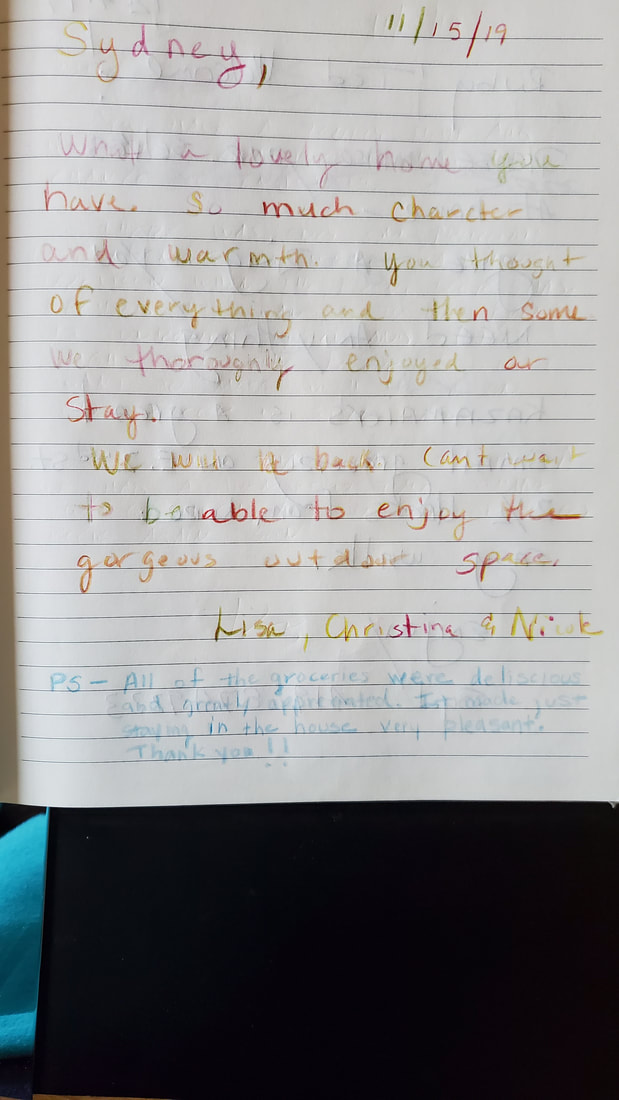 11/15/19
Sydney,
What a lovely home you
have. So much charcter
and warmth. you thought
of everything and then some
we thoroughly enjoyed or
Stay.
We will be back. Cant wait
to be able to enjoy the
gorgeous outdour space.
Lisa, Christina & Nicole
PS - All of the groceries were deliscious
and greatly appreciated. It made just
staying in the house very pleasant.
Thank you!!